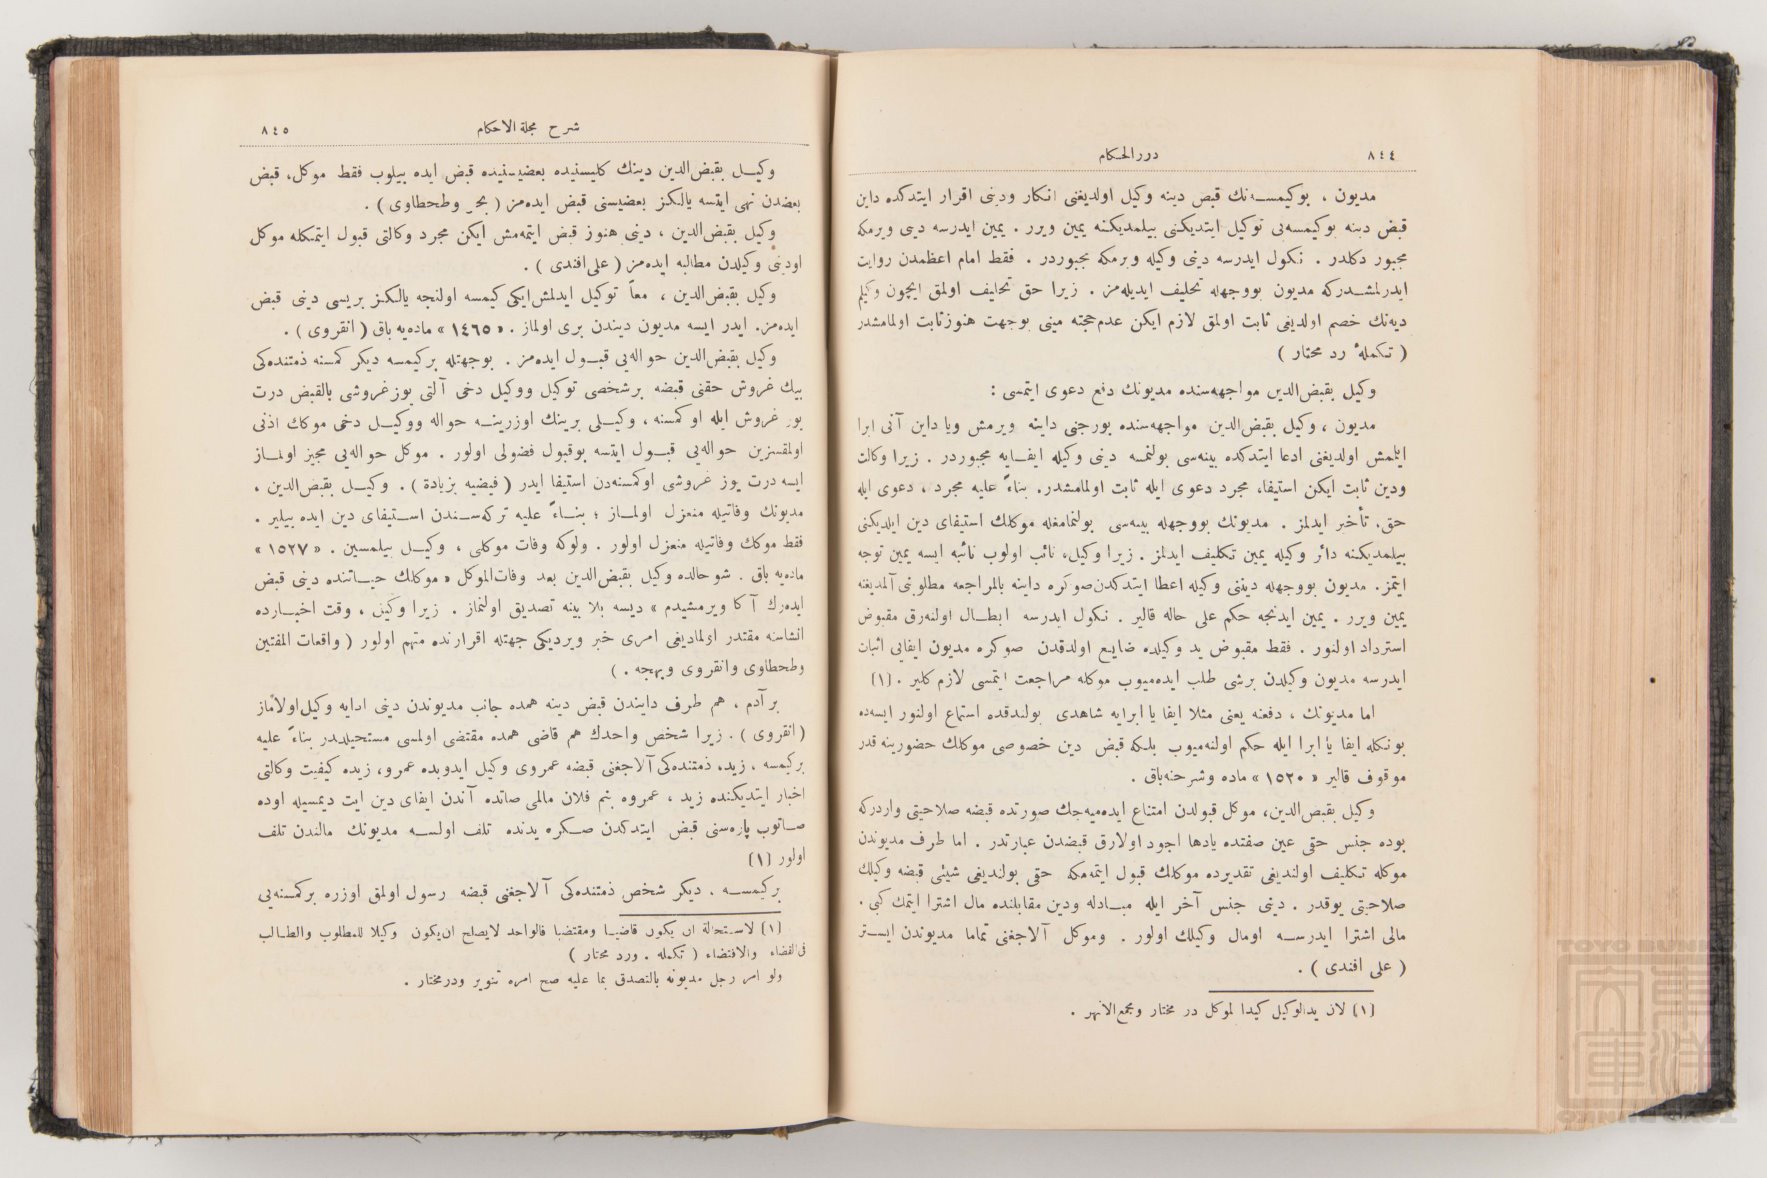 ٨٤٤
دررالحكام
مديون ، بوكيمسه‌نك قبض دينه وكيل اولديغنى انكار ودينى اقرار ايتدكده داين
قبض دينه بوكيمسه‌يى توكيل ايتديكنى بيلمديكنه يمين ويرر . يمين ايدرسه دينى ويرمكه
مجبور دكلدر . نكول ايدرسه دينى وكيله ويرمكه مجبوردر . فقط امام اعظمدن روايت
ايدرلمشدركه مديون بووجهله تحليف ايديله‌مز . زيرا حق تحليف اولمق ايچون وكيلم
ديه‌نك خصم اولديغى ثابت اولمق لازم ايكن عدم حجته مبنى بوجهت هنوز ثابت اولمامشدر
( تكملهٔ رد محتار )
وكيل بقبض‌الدين مواجهه‌سنده مديونك دفع دعوى ايتمسى :
مديون ، وكيل بقبض‌الدين مواجهه‌سنده بورجنى داينه ويرمش ويا داين آنى ابرا
ايلمش اولديغنى ادعا ايتدكده بينه‌سى بولنمسه دينى وكيله ايفايه مجبوردر . زيرا وكالت
ودين ثابت ايكن استيفا، مجرد دعوى ايله ثابت اولمامشدر. بناءً عليه مجرد ، دعوى ايله
حق، تأخير ايدلمز . مديونك بووجهله بينه‌سى بولنمامغله موكلك استيفاى دين ايلديكنى
بيلمديكنه دائر وكيله يمين تكليف ايدلمز . زيرا وكيل، نائب اولوب نائبه ايسه يمين توجه
ايتمز. مديون بووجهله ديننى وكيله اعطا ايتدكدن‌صوكره داينه بالمراجعه مطلوبنى آلمديغنه
يمين ويرر . يمين ايدنجه حكم على حاله قالير . نكول ايدرسه ابطال اولنه‌رق مقبوض
استرداد اولنور . فقط مقبوض يد وكيلده ضايع اولدقدن صوكره مديون ايفايى اثبات
ايدرسه مديون وكيلدن برشى طلب ايده‌ميوب موكله مراجعت ايتمسى لازم كلير . [١]
اما مديونك ، دفعنه يعنى مثلا ايفا يا ابرايه شاهدى بولندقده استماع اولنور ايسه‌ده
بونكله ايفا يا ابرا ايله حكم اولنه‌ميوب بلكه قبض دين خصوصى موكلك حضورينه قدر
موقوف قالير « ١٥٢٠ » ماده وشرحنه‌باق .
وكيل بقبض‌الدين، موكل قبولدن امتناع ايده‌ميه‌جك صورتده قبضه صلاحيتى واردركه
بوده جنس حقى عين صفتده يادها اجود اولارق قبضدن عبارتدر . اما طرف مديوندن
موكله تكليف اولنديغى تقديرده موكلك قبول ايتمه‌مكه حقى بولنديغى شيئى قبضه وكيلك
صلاحيتى يوقدر . دينى جنس آخر ايله مبادله ودين مقابلنده مال اشترا ايتمك كبى .
مالى اشترا ايدرسه اومال وكيلك اولور . وموكل آلاجغنى تماما مديوندن ايستر
( على افندى ) .
[١] لان يدالوكيل كيدا لموكل در مختار ومجمع‌الانهر .
شرح مجلة الاحكام
٨٤٥
وكيل بقبض‌الدين دينك كليسنيده بعضيسنيده قبض ايده بيلوب فقط موكل، قبض
بعضدن نهى ايتسه يالكز بعضيسنى قبض ايده‌مز ( بحر وطحطاوى ) .
وكيل بقبض‌الدين ، دينى هنوز قبض ايتمه‌مش ايكن مجرد وكالتى قبول ايتمكله موكل
اودينى وكيلدن مطالبه ايده‌مز ( على‌افندى ) .
وكيل بقبض‌الدين ، معاً توكيل ايدلمش‌ايكى كيمسه اولنجه يالكز بريسى دينى قبض
ايده‌مز. ايدر ايسه مديون ديندن برى اولماز . « ١٤٦٥ » ماده‌يه باق ( انقروى ) .
وكيل بقبض‌الدين حواله‌يى قبول ايده‌مز . بوجهتله بركيمسه ديكر كمسنه ذمتنده‌كى
بيك غروش حقنى قبضه برشخصى توكيل ووكيل دخى آلتى يوزغروشى بالقبض درت
يوز غروش ايله اوكمسنه ، وكيلى برينك اوزرينه حواله ووكيل دخى موكلك اذنى
اولمقسزين حواله‌يى قبول ايتسه بوقبول فضولى اولور . موكل حواله‌يى مجيز اولماز
ايسه درت يوز غروشى اوكمسنه‌دن استيفا ايدر ( فيضيه بزيادة ) . وكيل بقبض‌الدين ،
مديونك وفاتيله منعزل اولماز ؛ بناءً عليه تركه‌سندن استيفاى دين ايده بيلير .
فقط موكلك وفاتيله منعزل اولور . ولوكه وفات موكلى ، وكيل بيلمسين . « ١٥٢٧ »
ماده‌يه باق . شو حالده وكيل بقبض‌الدين بعد وفات‌الموكل « موكلك حياتنده دينى قبض
ايده‌رك آكا ويرمشيدم » ديسه بلا بينه تصديق اولنماز . زيرا وكيل ، وقت اخبارده
انشاسنه مقتدر اولماديغى امرى خبر ويرديكى جهتله اقرارنده متهم اولور ( واقعات المفتين
وطحطاوى وانقروى وبهجه . )
بر آدم ، هم طرف دايندن قبض دينه همده جانب مديوندن دينى ادايه وكيل‌اولاماز
( انقروى ) . زيرا شخص واحدك هم قاضى همده مقتضى اولمسى مستحيلدر بناءً عليه
بركيمسه ، زيد، ذمتنده‌كى آلاجغنى قبضه عمروى وكيل ايدوبده عمرو، زيده كيفيت وكالتى
اخبار ايتديكنده زيد ، عمروه بنم فلان مالمى صاتده آندن ايفاى دين ايت ديمسيله اوده
صاتوب پاره‌سنى قبض ايتدكدن صكره يدنده تلف اولسه مديونك مالندن تلف
اولور [١]
بركيمسه ، ديكر شخص ذمتنده‌كى آلاجغنى قبضه رسول اولمق اوزره بركمسنه‌يى
[١] لاستحالة ان يكون قاضيا ومقتضيا فالواحد لايصلح ان‌يكون وكيلا للمطلوب والطالب
فى‌القضاء والاقتضاء ( تكمله . ورد محتار )
ولو امر رجل مديونه بالتصدق بما عليه صح امره تنوير ودرمختار .